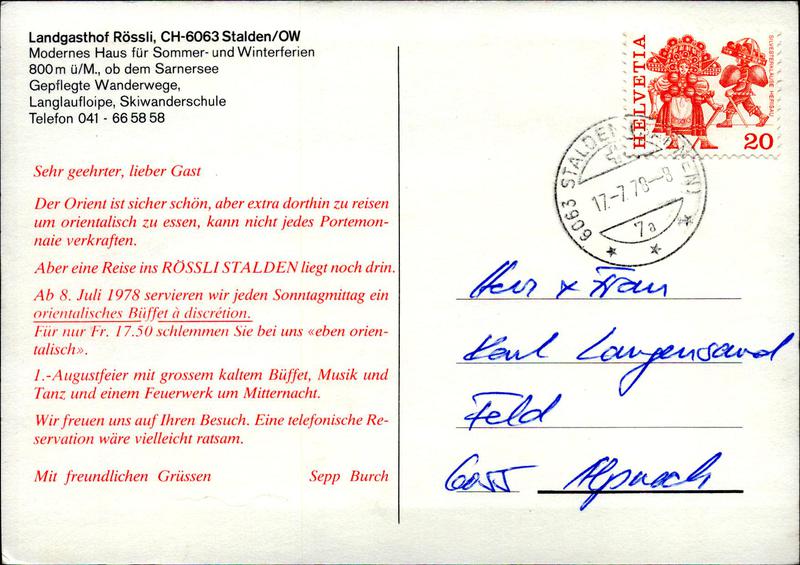 Landgasthof Rössli, CH-6063 Stalden/OW
Modernes Haus für Sommer- und Winterferien
800 m ü/M., ob dem Sarnersee
Gepflegte Wanderwege,
Langlaufloipe, Skiwanderschule
Telefon 041 - 66 58 58
Sehr geehrter, lieber Gast
Der Orient ist sicher schön, aber extra dorthin zu reisen
um orientalisch zu essen, kann nicht jedes Portemon-
naie verkraften.
Aber eine Reise ins RÖSSLI STALDEN liegt noch drin.
Ab 8. Juli 1978 servieren wir jeden Sonntagmittag ein
orientalisches Büffet à discrétion.
Für nur Fr. 17.50 schlemmen Sie bei uns «eben orien-
talisch».
1.-Augustfeier mit grossem kaltem Büffet, Musik und
Tanz und einem Feuerwerk um Mitternacht.
Wir freuen uns auf Ihren Besuch. Eine telefonische Re-
servation wäre vielleicht ratsam.
Mit freundlichen Grüssen Sepp Burch
HELVETIA
SILVESTERKLÄUSE HERISAU
20
6063 STALDEN
17.-7.78-8
7a
Herr + Frau
Karl Langensand
Feld
6055 Alpnach